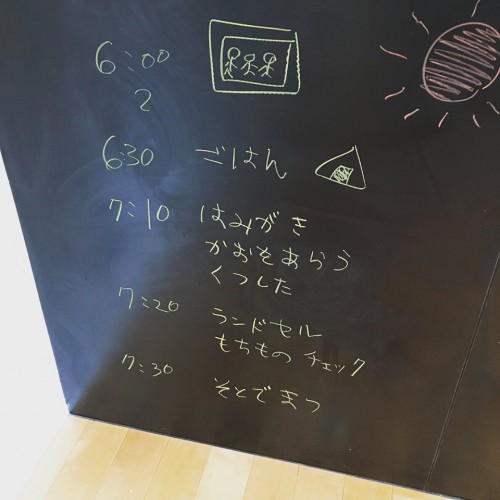 6:00
2
6:30 ごはん
7:10 はみがき
かおをあらう
くつした
7:20 ランドセル
もちもの チェック
7:30 そとでまつ